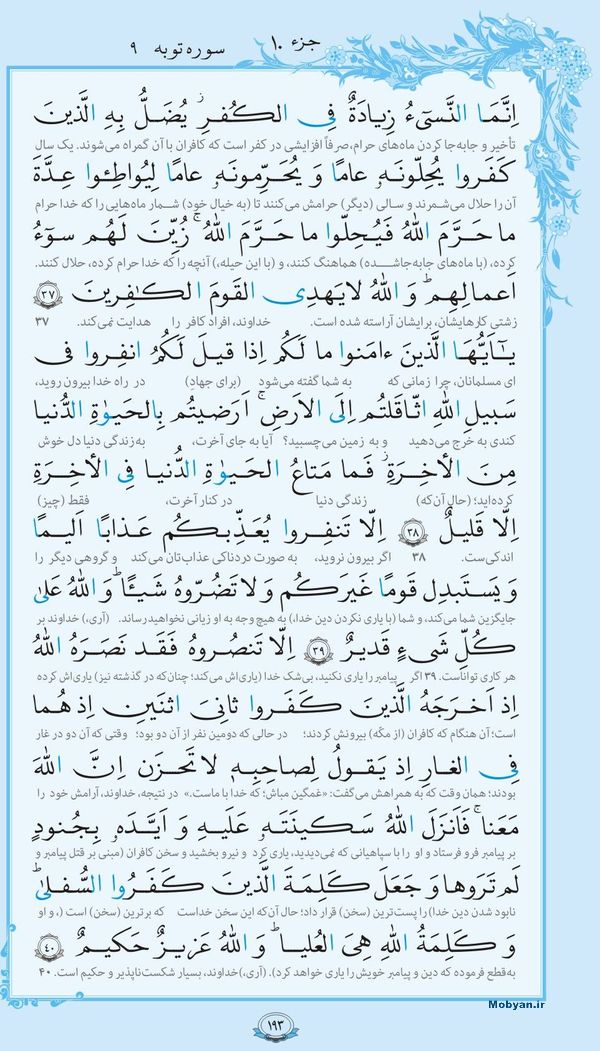 جزء ۱۰
سوره توبه ۹
اِنَّمَا النَّسیٓءُ زِیادَةٌ فِی الکُفرِ ۖ یُضَلُّ بِهِ الَّذینَ
تأخیر و جابه‌جا کردن ماه‌های حرام، صرفاً افزایشی در کفر است که کافران با آن گمراه می‌شوند. یک سال
کَفَروا یُحِلّونَهٗ عامًا وَ یُحَرِّمونَهٗ عامًا لِیُواطِئوا عِدَّةَ
آن را حلال می‌شمرند و سالی (دیگر) حرامش می‌کنند تا (به خیال خود) شمار ماه‌هایی را که خدا حرام
ما حَرَّمَ اللهُ فَیُحِلّوا ما حَرَّمَ اللهُ ۚ زُیِّنَ لَهُم سوٓءُ
کرده، (با ماه‌های جابه‌جاشده) هماهنگ کنند، و (با این حیله،) آنچه را که خدا حرام کرده، حلال کنند.
اَعمالِهِم ۗ وَ اللهُ لا یَهدِی القَومَ الکٰفِرینَ ۳۷
زشتی کارهایشان، برایشان آراسته شده است. خداوند، افراد کافر را هدایت نمی‌کند. ۳۷
یٰٓاَیُّهَا الَّذینَ ءامَنوا ما لَکُم اِذا قیلَ لَکُمُ انفِروا فی
ای مسلمانان، چرا زمانی که به شما گفته می‌شود (برای جهاد) در راه خدا بیرون روید،
سَبیلِ اللهِ اثّاقَلتُم اِلَی الاَرضِ ۚ اَرَضیتُم بِالحَیوٰةِ الدُّنیا
کندی به خرج می‌دهید و به زمین می‌چسبید؟ آیا به جای آخرت، به زندگی دنیا دل خوش
مِنَ الأٰخِرَةِ ۚ فَما مَتاعُ الحَیوٰةِ الدُّنیا فِی الأٰخِرَةِ
کرده‌اید؛ (حال آن‌که) زندگی دنیا در کنار آخرت، فقط (چیز)
اِلّا قَلیلٌ ۳۸ اِلّا تَنفِروا یُعَذِّبکُم عَذابًا اَلیمًا
اندکی‌ست. ۳۸ اگر بیرون نروید، به صورت دردناکی عذاب‌تان می‌کند و گروهی دیگر را
وَ یَستَبدِل قَومًا غَیرَکُم وَ لا تَضُرّوهُ شَیـًٔا ۗ وَ اللهُ عَلیٰ
جایگزین شما می‌کند، و شما (با یاری نکردن دین خدا،) به هیچ وجه به او زیانی نخواهید رساند. (آری،) خداوند بر
کُلِّ شَیءٍ قَدیرٌ ۳۹ اِلّا تَنصُروهُ فَقَد نَصَرَهُ اللهُ
هر کاری تواناست. ۳۹ اگر پیامبر را یاری نکنید، بی‌شک خدا (یاری‌اش می‌کند؛ چنان‌که در گذشته نیز) یاری‌اش کرده
اِذ اَخرَجَهُ الَّذینَ کَفَروا ثانِیَ اثنَینِ اِذ هُما
است؛ آن هنگام که کافران (از مکّه) بیرونش کردند؛ در حالی که دومین نفر از آن دو بود؛ وقتی که آن دو در غار
فِی الغارِ اِذ یَقولُ لِصاحِبِهٖ لا تَحزَن اِنَّ اللهَ
بودند؛ همان وقت که به همراهش می‌گفت: «غمگین مباش؛ که خدا با ماست.» در نتیجه، خداوند، آرامش خود را
مَعَنا ۖ فَاَنزَلَ اللهُ سَکینَتَهٗ عَلَیهِ وَ اَیَّدَهٗ بِجُنودٍ
بر پیامبر فرو فرستاد و او را با سپاهیانی که نمی‌دیدید، یاری کرد و نیرو بخشید و سخن کافران (مبنی بر قتل پیامبر و
لَم تَرَوها وَ جَعَلَ کَلِمَةَ الَّذینَ کَفَرُوا السُّفلیٰ ۗ
نابود شدن دین خدا) را پست‌ترین (سخن) قرار داد؛ حال آن‌که این سخن خداست که برترین (سخن) است (، و او
وَ کَلِمَةُ اللهِ هِیَ العُلیا ۗ وَ اللهُ عَزیزٌ حَکیمٌ ۴۰
به‌قطع فرموده که دین و پیامبر خویش را یاری خواهد کرد). (آری،) خداوند، بسیار شکست‌ناپذیر و حکیم است. ۴۰
Mobyan.ir
۱۹۳